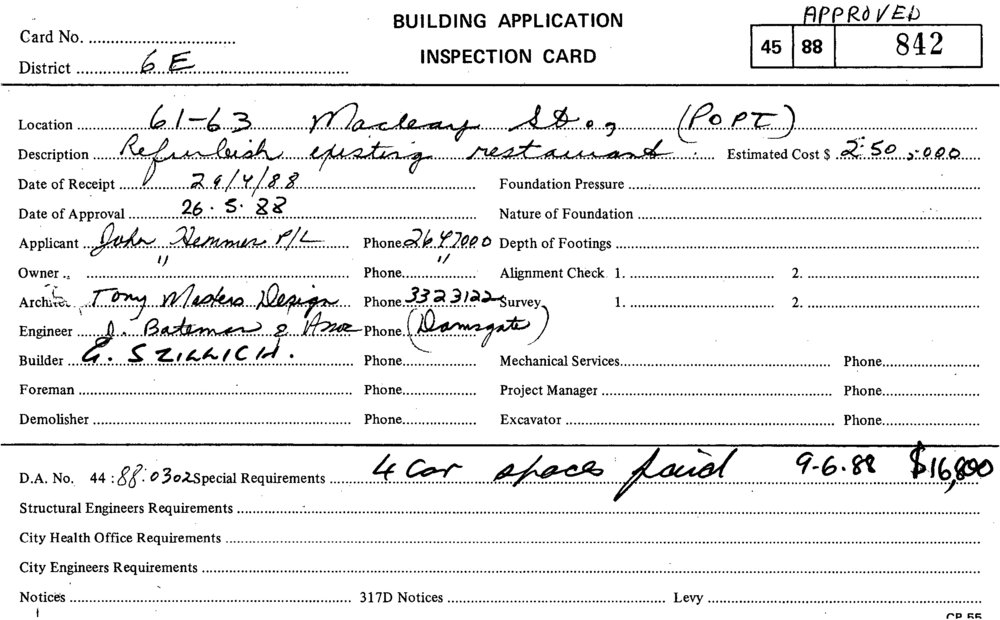 BUILDING APPLICATION
INSPECTION CARD
APPROVED
45 88 842
Card No.
District 6E
Location 61-63 Macleay St., (POPT)
Description Refurbish existing restaurant. Estimated Cost $ 250,000
Date of Receipt 29/4/88 Foundation Pressure
Date of Approval 26.5.88 Nature of Foundation
Applicant John Hemmes P/L Phone 2647000 Depth of Footings
Owner " Phone " Alignment Check 1. 2.
Tony Masters Design Phone 3323122 Survey 1. 2.
Engineer J. Bateman & Assoc Phone
Builder G. SZILLICH. Phone Mechanical Services Phone
Foreman Phone Project Manager Phone
Demolisher Phone Excavator Phone
D.A. No. 44:88:0302 Special Requirements 4 Car spaces paid 9-6-88 $16,800
Structural Engineers Requirements
City Health Office Requirements
City Engineers Requirements
Notices 317D Notices Levy
CP 55